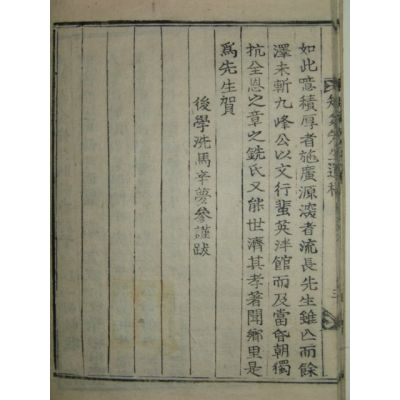 如此噫積厚者施廣源深者流長先生雖亡而餘
澤未斬九峰公以文行蜚英泮館而及當昏朝獨
抗全恩之章之銑氏又能世濟其孝著聞鄕里是
爲先生賀
後學洗馬辛夢參謹跋
先生遺稿